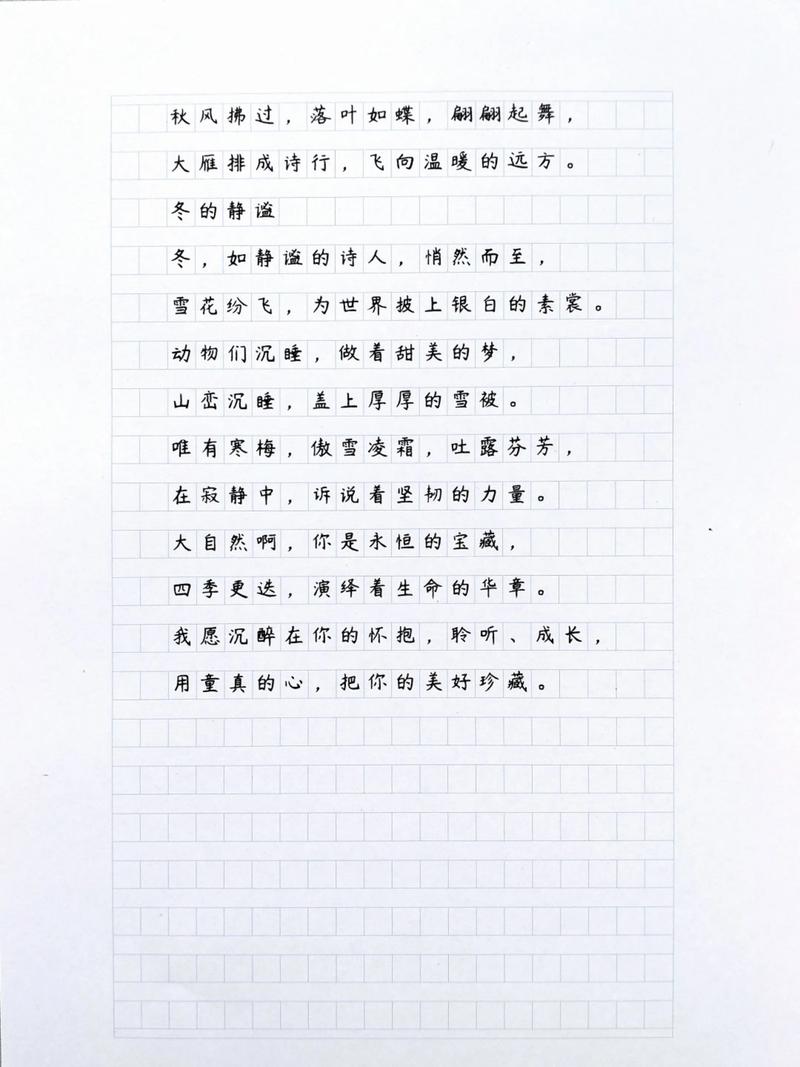 秋风拂过，落叶如蝶，翩翩起舞，
大雁排成诗行，飞向温暖的远方。
冬的静谧
冬，如静谧的诗人，悄然而至，
雪花纷飞，为世界披上银白的素裳。
动物们沉睡，做着甜美的梦，
山峦沉睡，盖上厚厚的雪被。
唯有寒梅，傲雪凌霜，吐露芬芳，
在寂静中，诉说着坚韧的力量。
大自然啊，你是永恒的宝藏，
四季更迭，演绎着生命的华章。
我愿沉醉在你的怀抱，聆听、成长，
用童真的心，把你的美好珍藏。